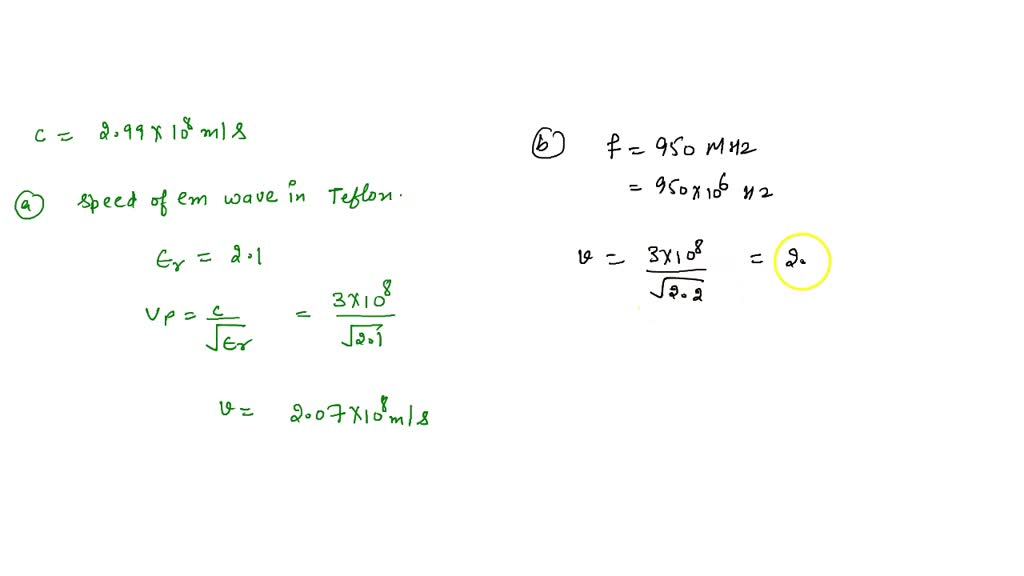 c = 2.99 × 10⁸ m/s
(a) Speed of em wave in Teflon.
ϵr = 2.1
Vp = c/√ϵr = 3×10⁸/√2.1
v = 2.07×10⁸ m/s
(b) f = 950 MHz
= 950×10⁶ Hz
v = 3×10⁸/√2.2 = 2.